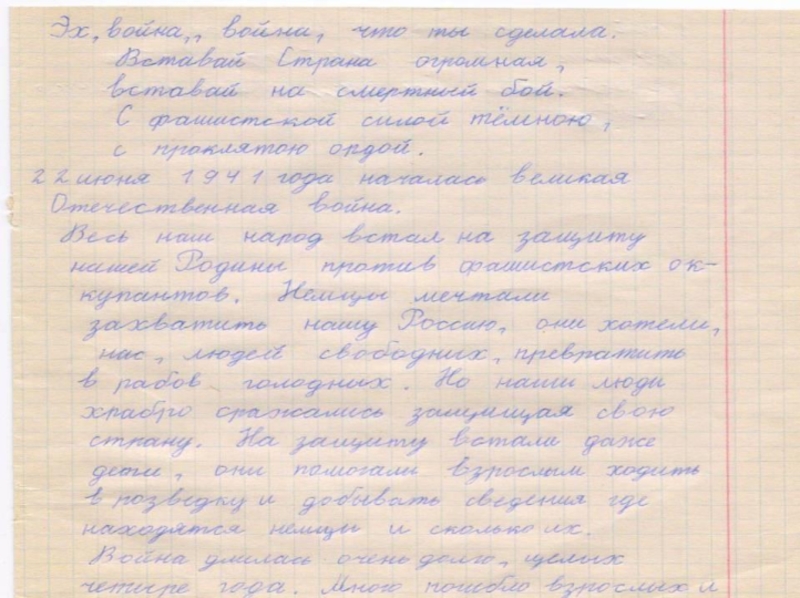 Эх, война,, война, что ты сделала.
Вставай Страна огромная,
вставай на смертный бой.
С фашистской силой тёмною,
с проклятою ордой.
22 июня 1941 года началась великая
Отечественная война.
Весь наш народ встал на защиту
нашей Родины против фашистских ок-
купантов. Немцы мечтали
захватить нашу Россию, они хотели,
нас, людей свободных, превратить
в рабов голодних. Но наши люди
храбро сражались защищая свою
страну. На защиту встали даже
дети, они помогали взрослым ходить
в розведку и добывать сведения где
находятся немцы и сколько их.
Война длилась очень долго, целых
четыре года. Много погибло взрослых и